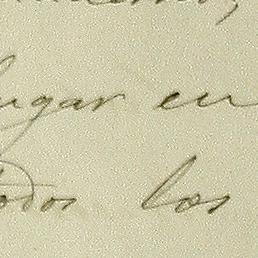 lugar en
todos los